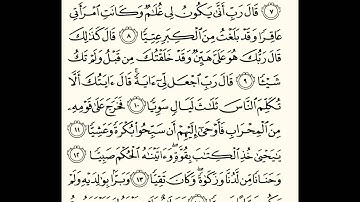 ٧ قَالَ رَبِّ أَنَّىٰ يَكُونُ لِي غُلَٰمٌ وَكَانَتِ ٱمْرَأَتِي
عَاقِرًا وَقَدْ بَلَغْتُ مِنَ ٱلْكِبَرِ عِتِيًّا ٨ قَالَ كَذَٰلِكَ
قَالَ رَبُّكَ هُوَ عَلَىَّ هَيِّنٌ وَقَدْ خَلَقْتُكَ مِن قَبْلُ وَلَمْ تَكُ
شَيْـًٔا ٩ قَالَ رَبِّ ٱجْعَل لِّىٓ ءَايَةً ۚ قَالَ ءَايَتُكَ أَلَّا
تُكَلِّمَ ٱلنَّاسَ ثَلَٰثَ لَيَالٍ سَوِيًّا ١٠ فَخَرَجَ عَلَىٰ قَوْمِهِۦ
مِنَ ٱلْمِحْرَابِ فَأَوْحَىٰٓ إِلَيْهِمْ أَن سَبِّحُوا۟ بُكْرَةً وَعَشِيًّا ١١
يَٰيَحْيَىٰ خُذِ ٱلْكِتَٰبَ بِقُوَّةٍ ۖ وَءَاتَيْنَٰهُ ٱلْحُكْمَ صَبِيًّا ١٢
وَحَنَانًا مِّن لَّدُنَّا وَزَكَوٰةً ۖ وَكَانَ تَقِيًّا ١٣ وَبَرًّۢا بِوَٰلِدَيْهِ وَلَمْ